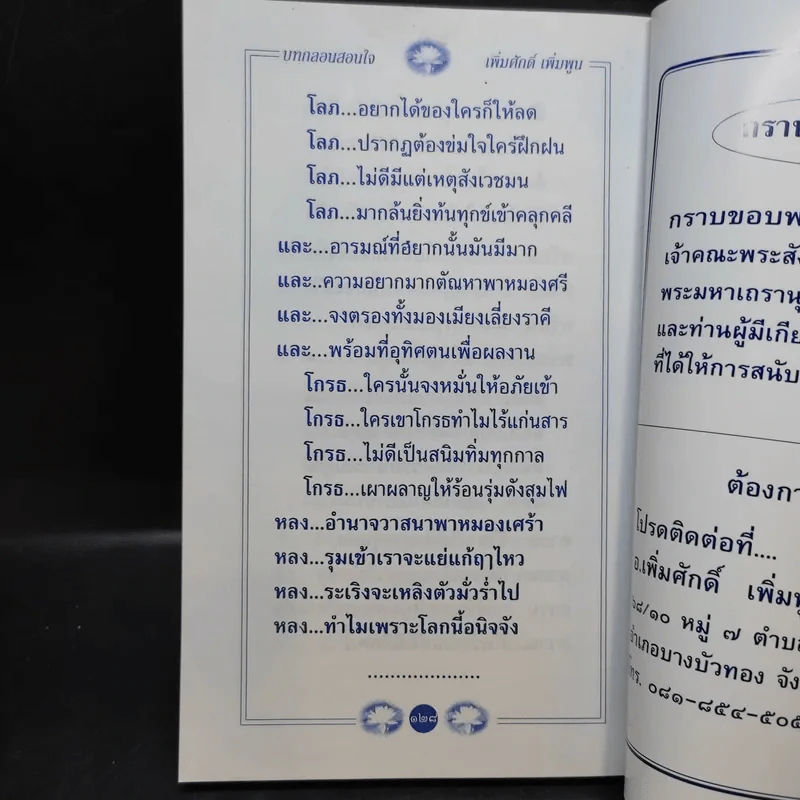 บทกลอนสอนใจ
เพิ่มศักดิ์ เพิ่มพูน
โลภ...อยากได้ของใครก็ให้ลด
โลภ...ปรากฏต้องข่มใจใคร่ฝึกฝน
โลภ...ไม่ดีมีแต่เหตุสังเวชมน
โลภ...มากล้นยิ่งท้นทุกข์เข้าคลุกคลี
และ...อารมณ์ที่อยากนั้นมันมีมาก
และ..ความอยากมากตัณหาพาหมองศรี
และ...จงตรองทั้งมองเมียงเลี่ยงราคี
และ...พร้อมที่อุทิศตนเพื่อผลงาน
โกรธ...ใครนั้นจงหมั่นให้อภัยเข้า
โกรธ...ใครเขาโกรธทำไมไร้แก่นสาร
โกรธ...ไม่ดีเป็นสนิมทิ่มทุกกาล
โกรธ...เผาผลาญให้ร้อนรุ่มดังสุมไฟ
หลง...อำนาจวาสนาพาหมองเศร้า
หลง...รุมเข้าเราจะแย่แก้ฤๅไหว
หลง...ระเริงจะเหลิงตัวมั่วร่ำไป
หลง...ทำไมเพราะโลกนี้อนิจจัง
....................
๑๒๘
กราบขอบ
เจ้าคณะพระสัง
พระมหาเถรานุ
และท่านผู้มีเกีย
ที่ได้ให้การสนับ
ต้องกา
โปรดติดต่อที่....
อ.เพิ่มศักดิ์ เพิ่มพู
๖๘/๑๐ หมู่ ๗ ตำบล
อำเภอบางบัวทอง จัง
โทร. ๐๘๑-๘๕๔-๕๐๕